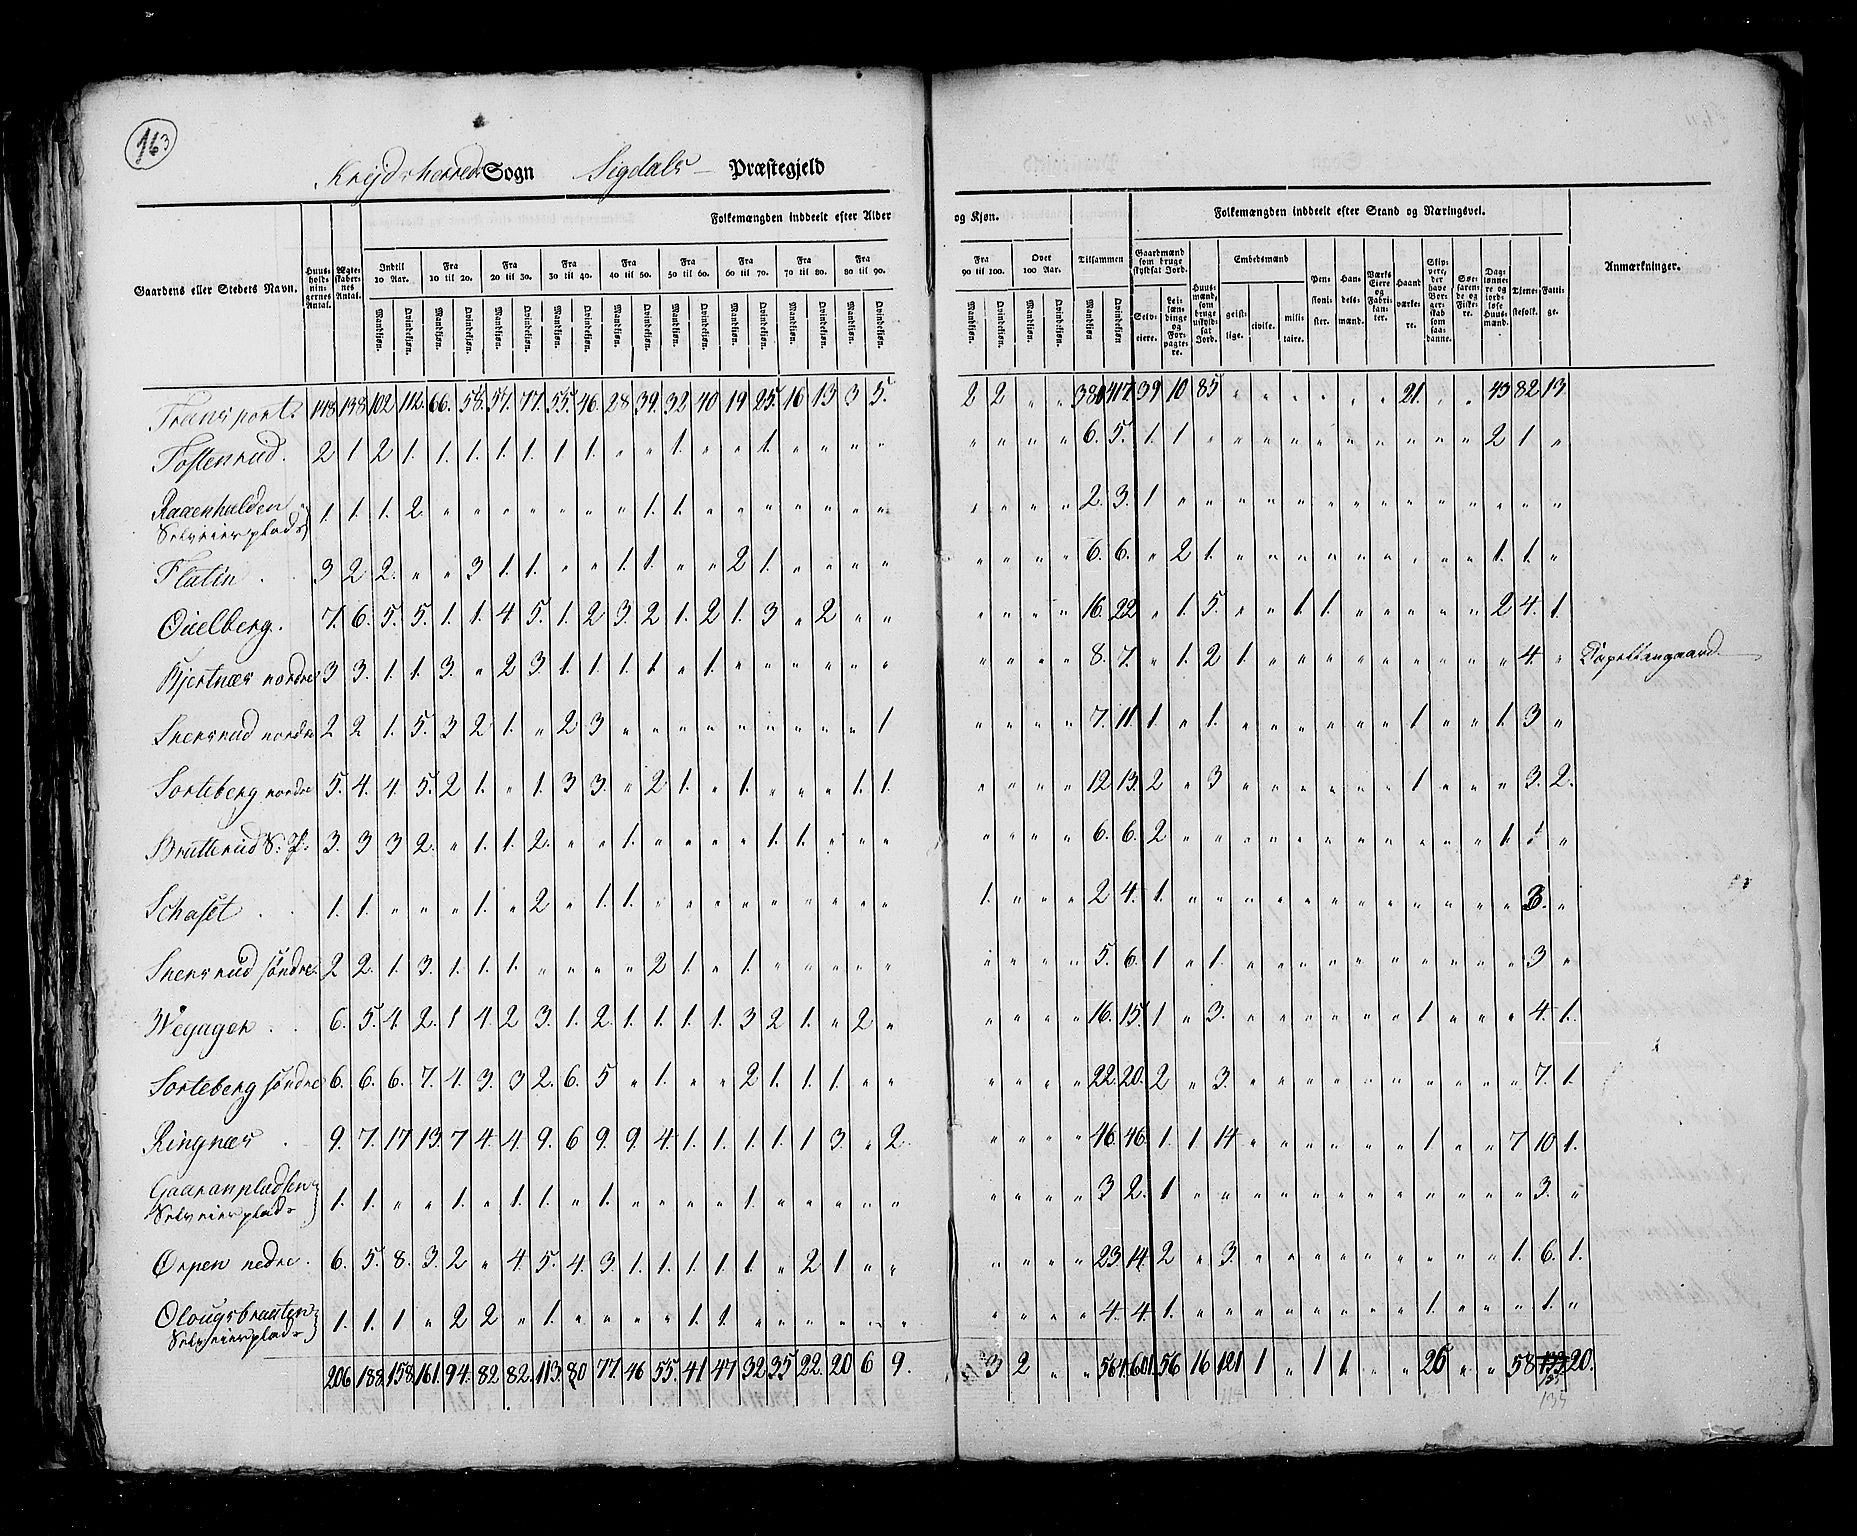 163
Krydsherreds Sogn Sigdals Præstegjeld
Gaardens eller Stedets Navn. | Huusholdningernes Antal. | Ægteskabernes Antal. | Folkemængden inddeelt efter Alder og Kjøn. | Folkemængden inddeelt efter Stand og Næringsvei. | Anmærkninger.
Indtil 10 Aar. | Fra 10 til 20. | Fra 20 til 30. | Fra 30 til 40. | Fra 40 til 50. | Fra 50 til 60. | Fra 60 til 70. | Fra 70 til 80. | Fra 80 til 90. | Fra 90 til 100. | Over 100 Aar. | Tilsammen | Gaardmænd som bruge skyldsat Jord. | Huusmænd, som bruge uskyldsat Jord. | Embedsmænd | Pensionister. | Handelsmænd. | Værks Eiere og Fabrikanter. | Haandværkere. | | Daglønnere og jordløse Huusmænd. | Tjenestefolk. | Fattige.
Mandkjøn. Qvindekjøn. | Selveiere. | Leilændinge og Forpagtere. | geistlige. | civile. | militaire.
Transport 148 138 102 112 66. 58. 57. 77. 55. 46. 28 39. 32 40 19 25. 16 13 3 5. 2 2 „ „ 380 417 39 10 85 „ „ „ „ „ „ 21. „ „ 43 82 13
Tostenrud. 2 1 2 1. 1. 1. 1. 1. 1. 1. „ „ 1. „ „ 1. „ „ „ „ „ „ „ „ 6. 5. 1. 1 „ „ „ „ „ „ „ „ „ „ 2 1 „
Raaenhulden
Selveierplads 1. 1. 1. 2 „ „ „ „ „ „ „ 1. 1. „ „ „ „ „ „ „ „ „ „ „ 2. 3. 1 „ „ „ „ „ „ „ „ „ „ „ „ „ „
Flatin 3 2 2. „ „ 3 1. 1. „ „ 1. 1. „ „ 2 1. „ „ „ „ „ „ „ „ 6. 6. „ 2 1. „ „ „ „ „ „ „ „ „ 1. 1. „
Øuelberg. 7. 6. 5. 5. 1. 1. 4 5. 1. 2 3. 2 1. 2 1. 3 „ 2 „ „ „ „ „ „ 16. 22 „ 1. 5. „ „ 1 1. „ „ „ „ „ 2 4. 1.
Bjertnæs nordre 3 3. 1. 1. 3. „ 2 3. 1. 1. 1. 1. „ 1. „ „ „ „ „ „ „ „ „ „ 8. 7. „ 1. 2 1. „ „ „ „ „ „ „ „ „ 4. „
Skensrud nordre 2 2 1. 5. 3 2 1. „ 2 3 „ „ „ „ „ „ „ „ „ 1 „ „ „ „ 7. 11. 1 „ 1. „ „ „ „ „ „ 1 „ „ 1. 3 „
Sorteberg nordre 5. 4. 4. 5. 2 1. „ 1. 3 3. „ 2 1. „ 1. „ „ „ 1. 1. „ „ „ „ 12 13. 2 „ 3 „ „ „ „ „ „ 1 „ „ „ 3. 2.
Brutterud S. P. 3. 3 3 2. „ 1. 1. 2. „ „ 1. „ „ „ „ 1. 1. „ „ „ „ „ „ „ 6. 6. 2 „ „ „ „ „ „ „ „ „ „ „ 1 1. „
Schaset 1. 1. „ „ „ 1. „ 2 „ 1. 1. „ „ „ „ „ „ „ „ „ 1. „ „ „ 2 4. 1 „ „ „ „ „ „ „ „ „ „ „ „ 3. „
Skensrud søndre 2 2. 1. 3. 1. 1. 1. „ „ „ „ 2 1. „ 1. „ „ „ „ „ „ „ „ „ 5. 6. 1 „ 1. „ „ „ „ „ „ „ „ „ „ 3 „
Wegager 6. 5. 4. 2. 1 4. 2 3. 1. 2. 1. 1. 1. 1. 3 2 1. „ 2. „ „ „ „ „ 16. 15. 1 „ 3. „ „ „ „ „ „ 1 „ „ „ 4. 1.
Sorteberg søndre 6. 6. 6. 7. 4. 3. 3 2. 6. 5 „ 1. „ „ 2 1. 1. 1. „ „ „ „ „ „ 22 20. 2 „ 3. „ „ „ „ „ „ „ „ „ „ 7. 1.
Ringnæs 9. 7. 17 13. 7 4. 4. 9. 6 9. 9 4. 1. 1. 1. 1. 1 3. „ 2. „ „ „ „ 46. 46. 1. 1 14 „ „ „ „ „ „ 1 „ „ 7 10 1.
Gaaranpladsen
Selveierplads 1. 1. „ „ 1. „ 1. 1. „ 1. „ „ „ „ 1. „ „ „ „ „ „ „ „ „ 3 2. 1 „ „ „ „ „ „ „ „ „ „ „ „ 3. „
Ørpen nedre. 6. 5. 8. 3. 2 „ 4. 5. 4. 3. 1. 1. 1. 1. 1. „ 2 1. „ „ „ „ „ „ 23. 14. 2 „ 3. „ „ „ „ „ „ „ „ „ 1. 6. 1.
Olougsbraaten
Selveierplads 1. 1. 1 „ 2 2 „ 1. „ „ „ „ 1. 1. „ „ „ „ „ „ „ „ „ „ 4. 4. 1. „ „ „ „ „ „ „ „ 1. „ „ „ 1. „
206 188. 158. 161. 94. 82 82. 113. 80 77. 46 55. 41 47 32 35 22. 20 6 9. 3 2 „ „ 564. 601. 56 16 121 1 „ 1 1. „ „ 26 „ „ 58 135 20.
135